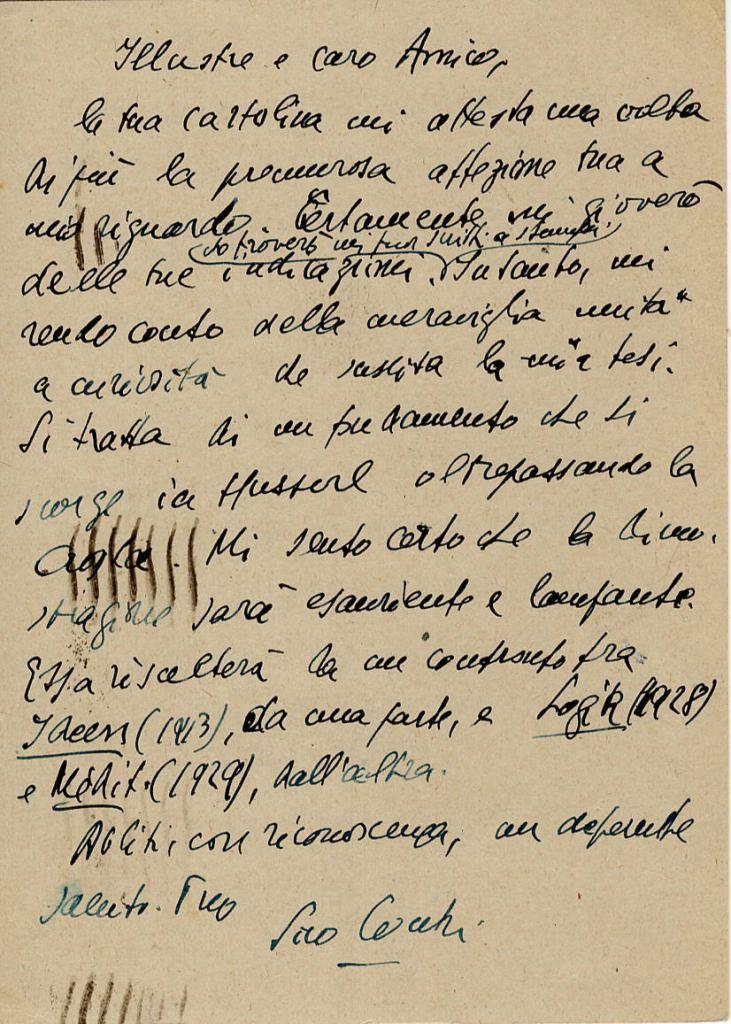 Illustre e caro Amico,
la tua cartolina mi attesta una volta
di più la premurosa affezione tua a
mio riguardo. Certamente mi gioverò
(So troverò nei tuoi scritti a stampa.)
delle tue indicazioni. Intanto, mi
rendo conto della meraviglia unita
a curiosità che suscita la mia tesi.
Si tratta di un fondamento che si
scorge in Husserl oltrepassando la
. Mi sento certo che la dimo-
strazione sarà esauriente e lampante.
Essa risulterà da un confronto fra
Ideen (1913), da una parte, e Logik (1928)
e Médit. (1929), dall'altra.
Abiti, con riconoscenza, un deferente
saluto. Tuo